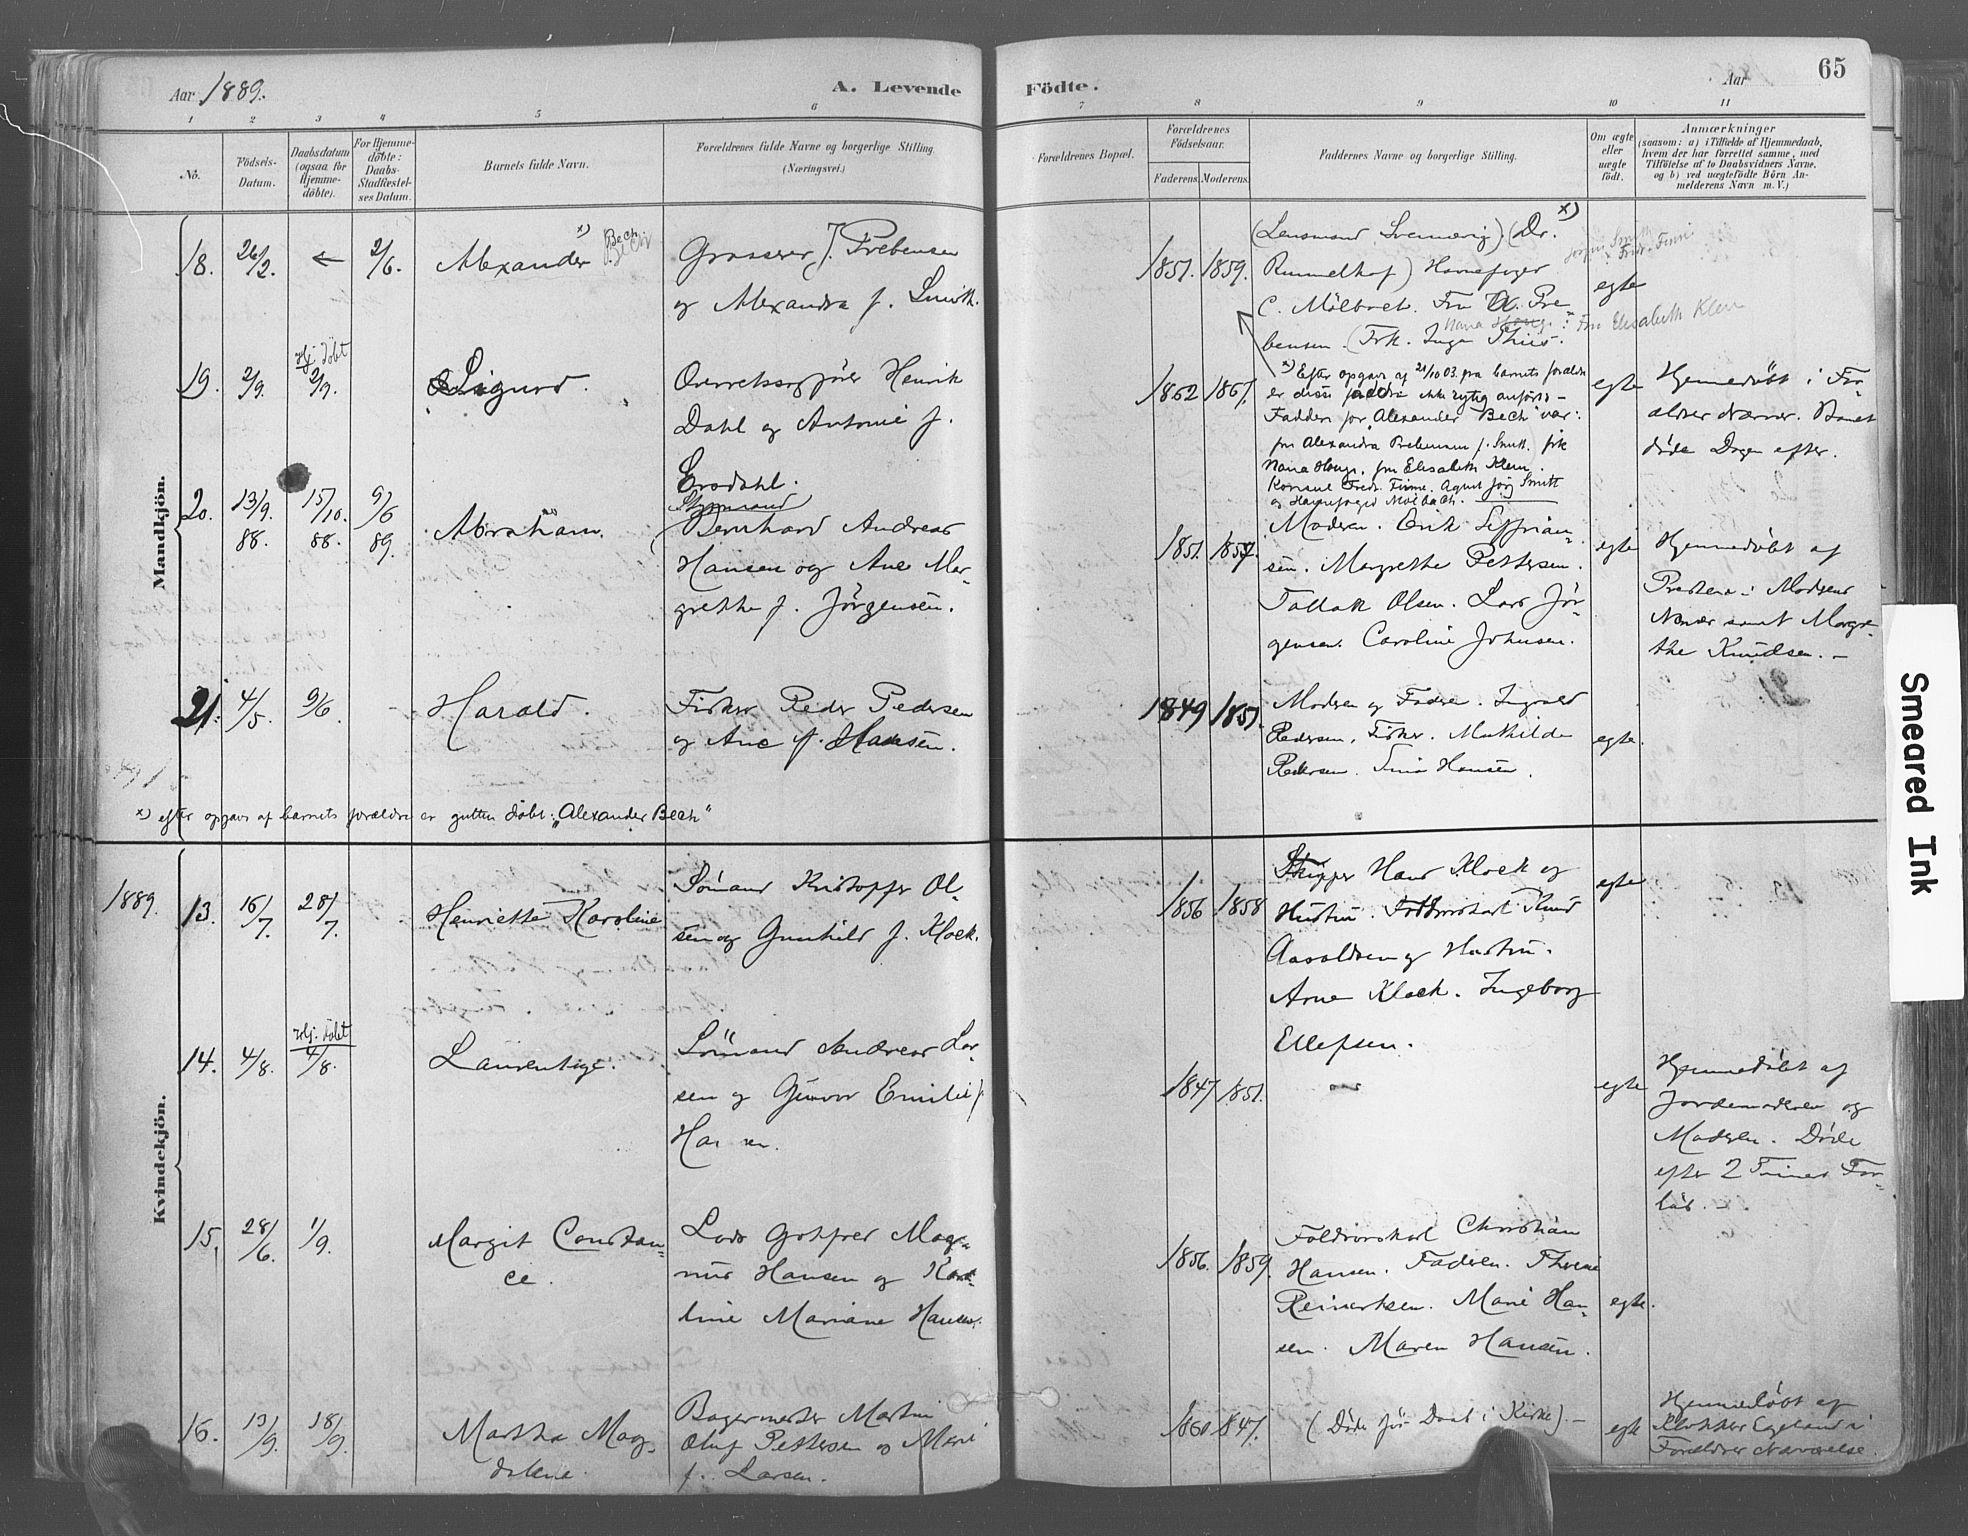 Aar 1889.
A. Levende
Födte.
Aar
65
1 2 3 4 5 6 7 8 9 10 11
No.
Födsels-
Datum.
Daabsdatum
(ogsaa for
Hjemme-
döbte).
For Hjemme-
döbte:
Daabs-
Stadfæstel-
ses Datum.
Barnets fulde Navn.
Forældrenes fulde Navne og borgerlige Stilling.
(Næringsvei.)
Forældrenes Bopæl.
Forældrenes
Födselsaar.
Faderens. Moderens.
Faddernes Navne og borgerlige Stilling.
Om ægte
eller
uægte
födt.
Anmærkninger
(saasom: a) i Tilfælde af Hjemmedaab,
hvem der har forrettet samme, med
Tilföielse af to Daabsvidners Navne.
og b) ved uægtefödte Börn An-
melderens Navn m. V.)
Mandkjön.
18. 26/2. ← 2/6. Alexander x) Bech
Grosserer J. Prebensen
og Alexandra f. Smith.
1851. 1859.
x)
(Lensmand Svenning) (Dr.
Rummelhof) Havnefoged
C. Mölbach. Fru A. Pre-
bensen. (Frk. Inga Thiis.
Jørgen Smith
Fredr. Finne
Nana Houge : Fru Elisabeth Klem
egte
19. 2/9. Hj. döbt 2/9. Sigurd.
Overretssagförer Henrik
Dahl og Antonie f.
Brodahl.
1862 1867.
x) Efter opgave af 21/10 03 fra barnets forældre
er disse faddre ikke rigtig anført –
Faddere for „Alexander Bech" var:
fru Alexandra Prebensen f. Smith. frk
Nana Houge, fru Elisabeth Klem.
Konsul Fredr. Finne. Agent Jörg Smith
og Havnefoged Mölbach.
egte
Hjemmedöbt i For-
ældres Nærvær. Barnet
döde Dagen efter.
20. 13/9. 88. 15/10. 88. 9/6 89. Abraham.
Styrmand
Bernhard Andreas
Hansen og Ane Mar-
grethe f. Jörgensen.
1851. 1857.
Moderen. Erik Seffrian-
sen. Margrethe Pettersen.
Tallak Olsen. Lars Jör-
gensen. Caroline Johnsen.
egte
Hjemmedöbt af
Præsten i Moderens
Nærvær samt Margre-
the Knudsen. –
21. 4/5. 9/6. Harald.
Fisker Peder Pedersen
og Ane f. Hansen.
1849 1851.
Moderen og Fadere. Ingvald
Pedersen, Fisker. Mathilde
Pedersen. Tina Hansen.
egte.
x) efter opgave af barnets forældre er gutten döbt: „Alexander Bech"
Kvindekjön.
1889. 13. 16/7. 28/7. Henriette Karoline
Sömand Kristoffer Ol-
sen og Gunhild f. Klock.
1856 1858
Skipper Hans Klock og
Hustru. Toldrorskarl Knud
Aavoldsen og Hustru.
Arne Klock. Ingeborg
Ellefsen.
egte
14. 4/8. Hj. döbt 4/8. Laurentze.
Sömand Andreas Lar-
sen og Gunvor Emilie f.
Hansen.
1847 1851.
egte
Hjemmedöbt af
Jordemoderen og
Moderen. Döde
efter 2 Timers For-
löb. –
15. 28/6. 1/9. Margit Constan-
ce.
Lods Gotfred Mag-
nus Hansen og Karo-
line Mariane Hansen.
1856. 1859.
Toldrorskarl Christian
Hansen. Faderen. Thrine
Reinertsen. Marie Han-
sen. Maren Hansen.
egte.
16. 13/9. 18/9. Martha Mag-
dalene.
Bagermester Martin
Oluf Pettersen og Marie
f. Larsen.
1860 1847.
(Döde för Daab i Kirke). –
egte
Hjemmedöbt af
Klokker Egeland i
Forældres Nærværelse.
Smeared Ink